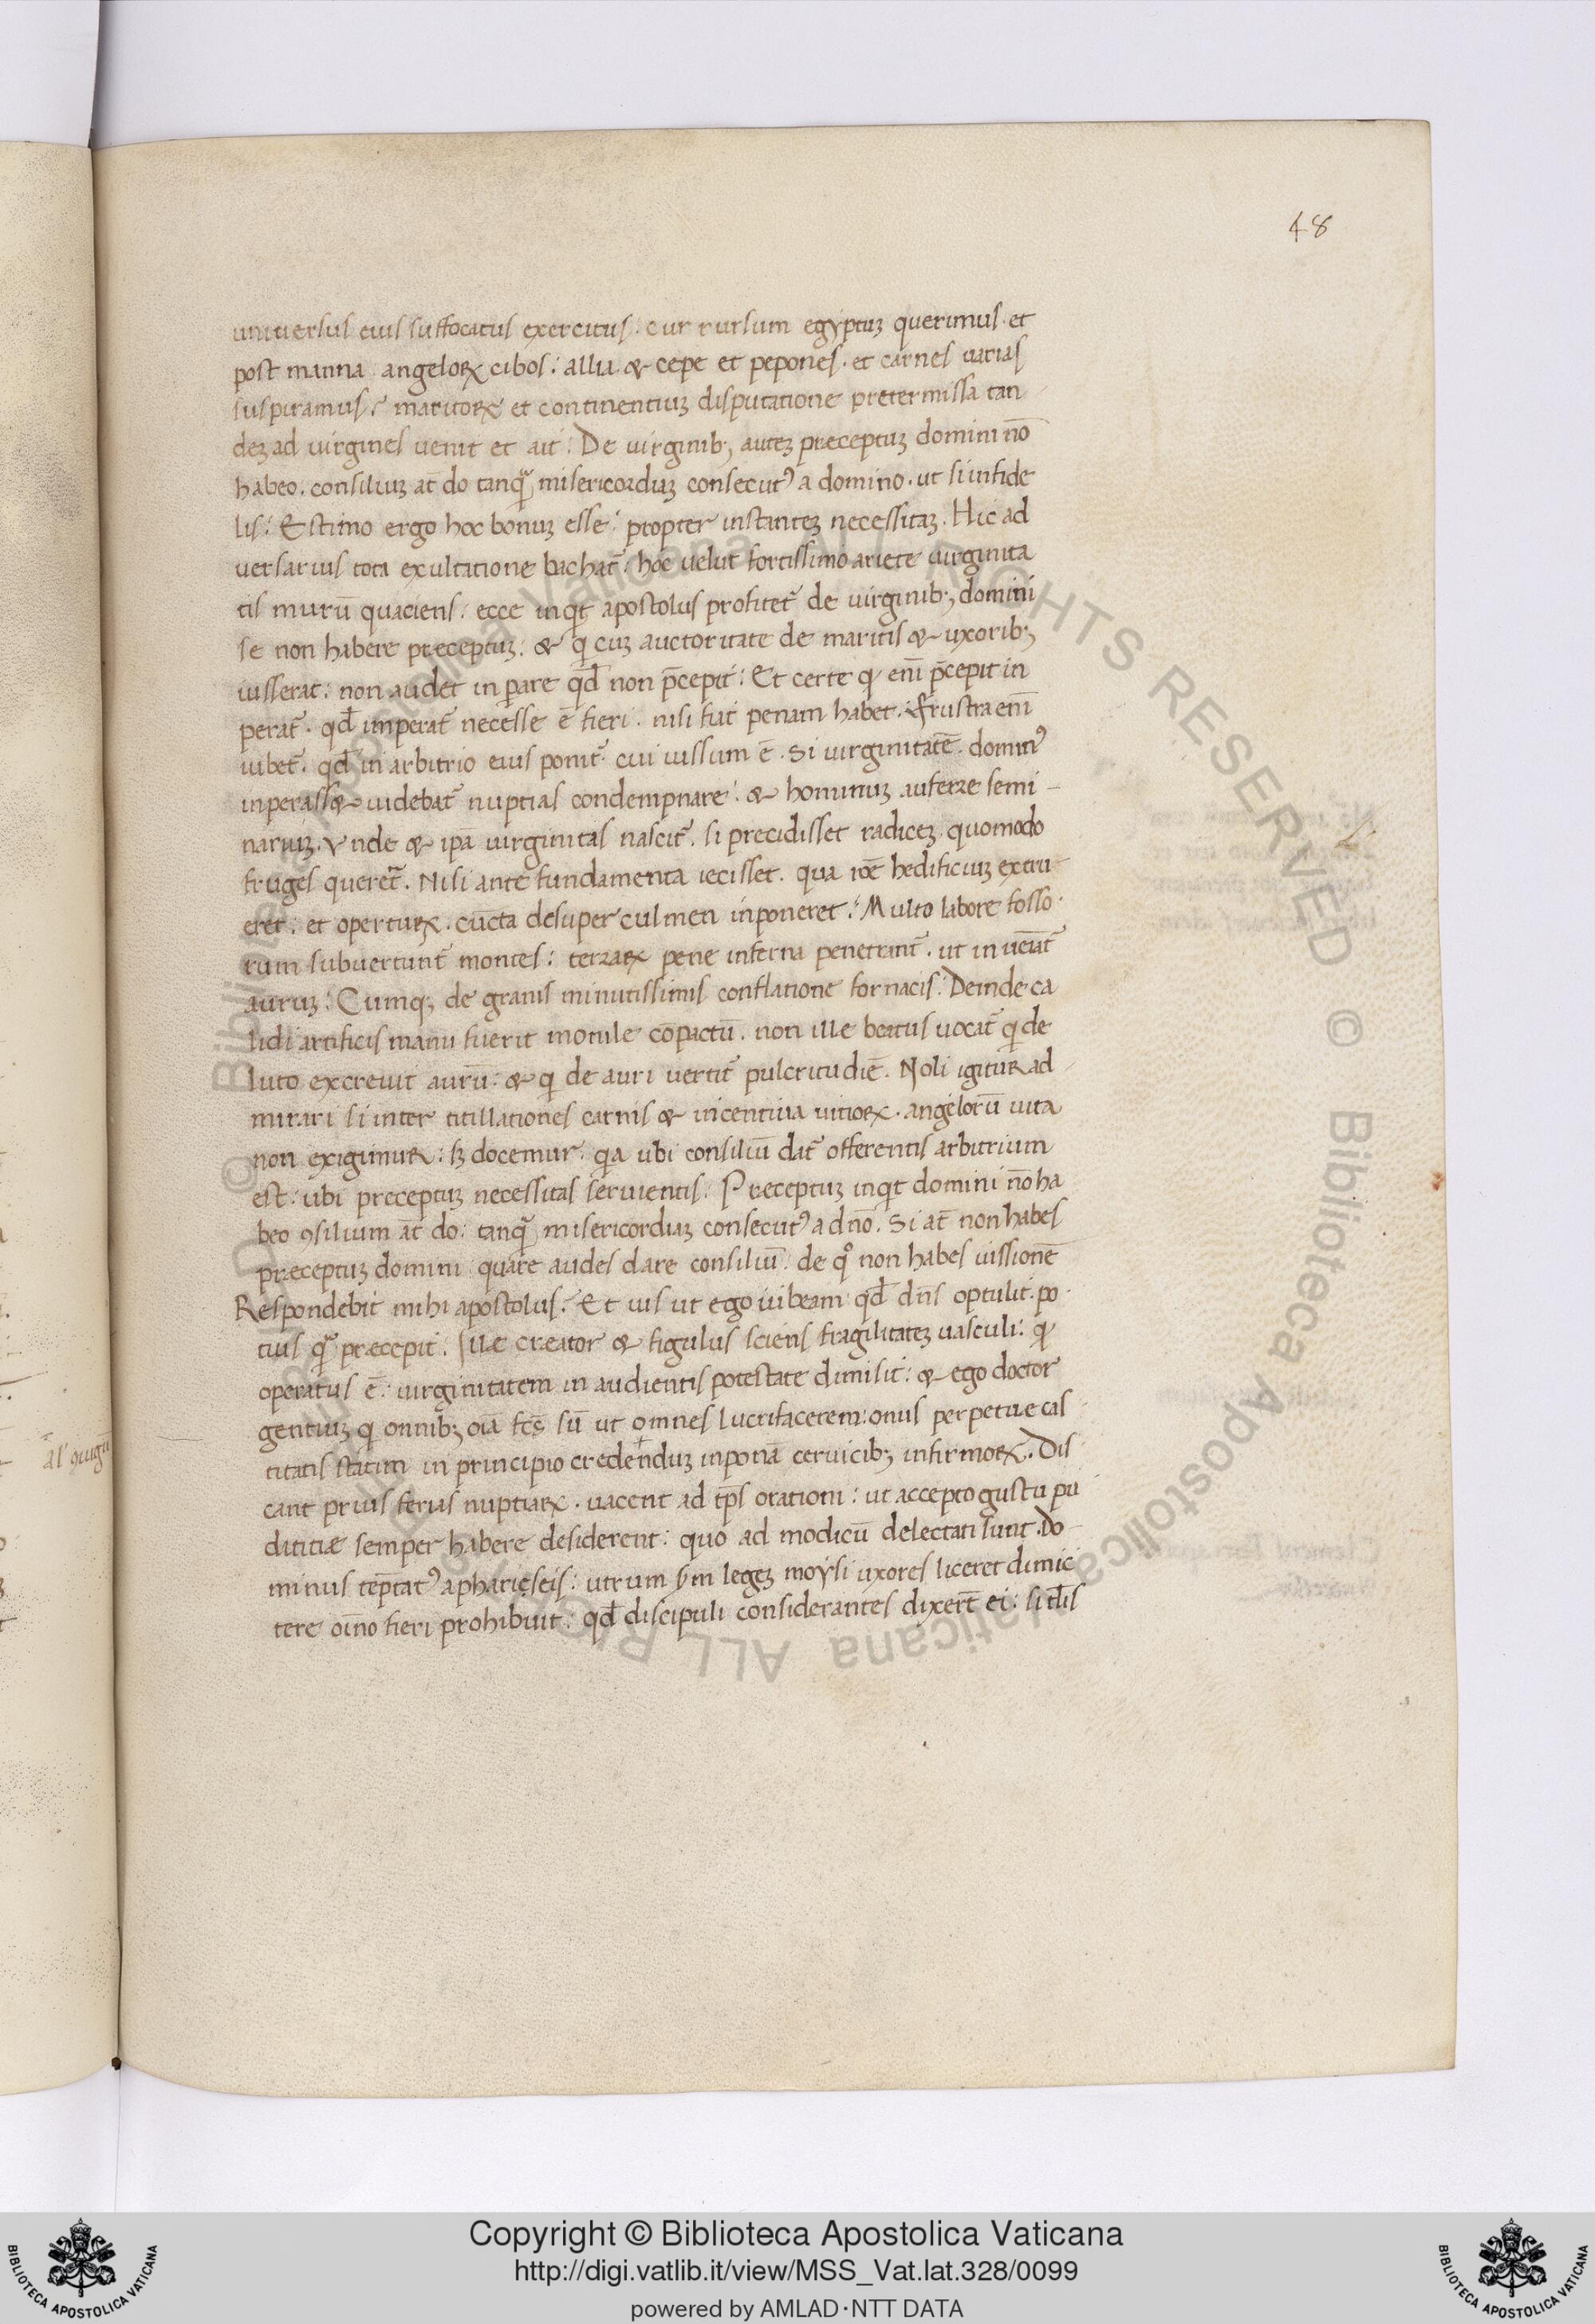 48
universus eius suffocatus exercitus: cur rursum egyptuꝫ querimus. et
post manna angeloꝝ cibos: allia & cepe et pepones. et carnes uarias
suspiramus? maritoꝝ et continentiuꝫ disputatione pretermissa tan
deꝫ ad virgines venit et ait: De virginibꝫ auteꝫ præceptuꝫ domini nō
habeo. consiliuꝫ at̄ do tanqᷓ misericordiaꝫ consecutꝰ a domino. ut si infide
lis: Estimo ergo hoc bonuꝫ esse: propter instanteꝫ necessitaꝫ. Hic ad
versarius tota exultatione bachat᷑: hoc velut fortissimo ariete virginita
tis murū quaciens: ecce inqͥt apostolus profitet᷑ de virginibꝫ domini
se non habere præceptuꝫ: & qͥ cuꝫ auctoritate de maritis & uxoribꝫ
iusserat: non audet inꝑare qd̄ non p̄cepit: Et certe qͥ enī p̄cepit in
perat᷑. qd̄ imperat᷑ necesse ē fieri. nisi fiat penam habet. Frustra enī
iubet᷑. qd̄ in arbitrio eius ponit᷑ cui iussum ē. Si virginitatē. dominꝰ
inperass& videbat᷑ nuptias condempnare: & hominuꝫ auferre semi-
nariuꝫ. Vnde & ipā virginitas nascit᷑. si precidisset radiceꝫ quomodo
fruges queret᷑. Nisi ante fundamenta iecisset. qua roē hedificiuꝫ extru-
eret: et operturꝝ. cūcta desuper culmen inponeret? Multo labore fosso
rum subvertunt᷑ montes: terraꝝ pene inferna penetrant᷑. ut inveiat᷑
auruꝫ: Cumqꝫ de granis minutissimis conflatione fornacis. Deinde ca
lidi artificis manu fuerit monile cōpactū. non ille beatus vocat᷑ qͥ de
luto excrevit aurū: & qͥ de auri vertit᷑ pulcritudiē. Noli igitur ad
mirari si inter titillationes carnis & incentiva vitioꝝ. angelorū vita
non exigimur: sꝫ docemur. qͥa ubi consiliū dat᷑ offerentis arbitrium
est: ubi preceptuꝫ necessitas servientis: Præceptuꝫ inqͥt domini nō ha
beo ꝯsilium at̄ do: tanqᷓ misericordiaꝫ consecutꝰ a dnō. Si at̄ non habes
præceptuꝫ domini quare audes dare consiliū: de qͦ non habes iussionē
Respondebit mihi apostolus? Et vis ut ego iubeam qd̄ dn̄s optulit. po
tius qᷓ præcepit: Ille creator & figulus sciens fragilitateꝫ vasculi: qͥ
operatus ē: virginitatem in audientis potestate dimisit: & ego doctor
gentiuꝫ qͥ omnibꝫ oīa fc̄s sū ut omnes lucrifacerem: onus perpetue cas
titatis statim in principio credenduꝫ inponā cervicibꝫ infirmoꝝ. Dis
cant prius ferias nuptiaꝝ. vacent ad tp̄s orationi: ut accepto gustu pu
dititiæ semper habere desiderent: quo ad modicū delectati sunt. Do-
minus tēptatꝰ a pharisęis: utrum ẜm legeꝫ moysi uxores liceret dimic
tere oīno fieri prohibuit: qd̄ discipuli considerantes dixert̄ ei: si tl̄is
Copyright © Biblioteca Apostolica Vaticana
http://digi.vatlib.it/view/MSS_Vat.lat.328/0099
powered by AMLAD·NTT DATA